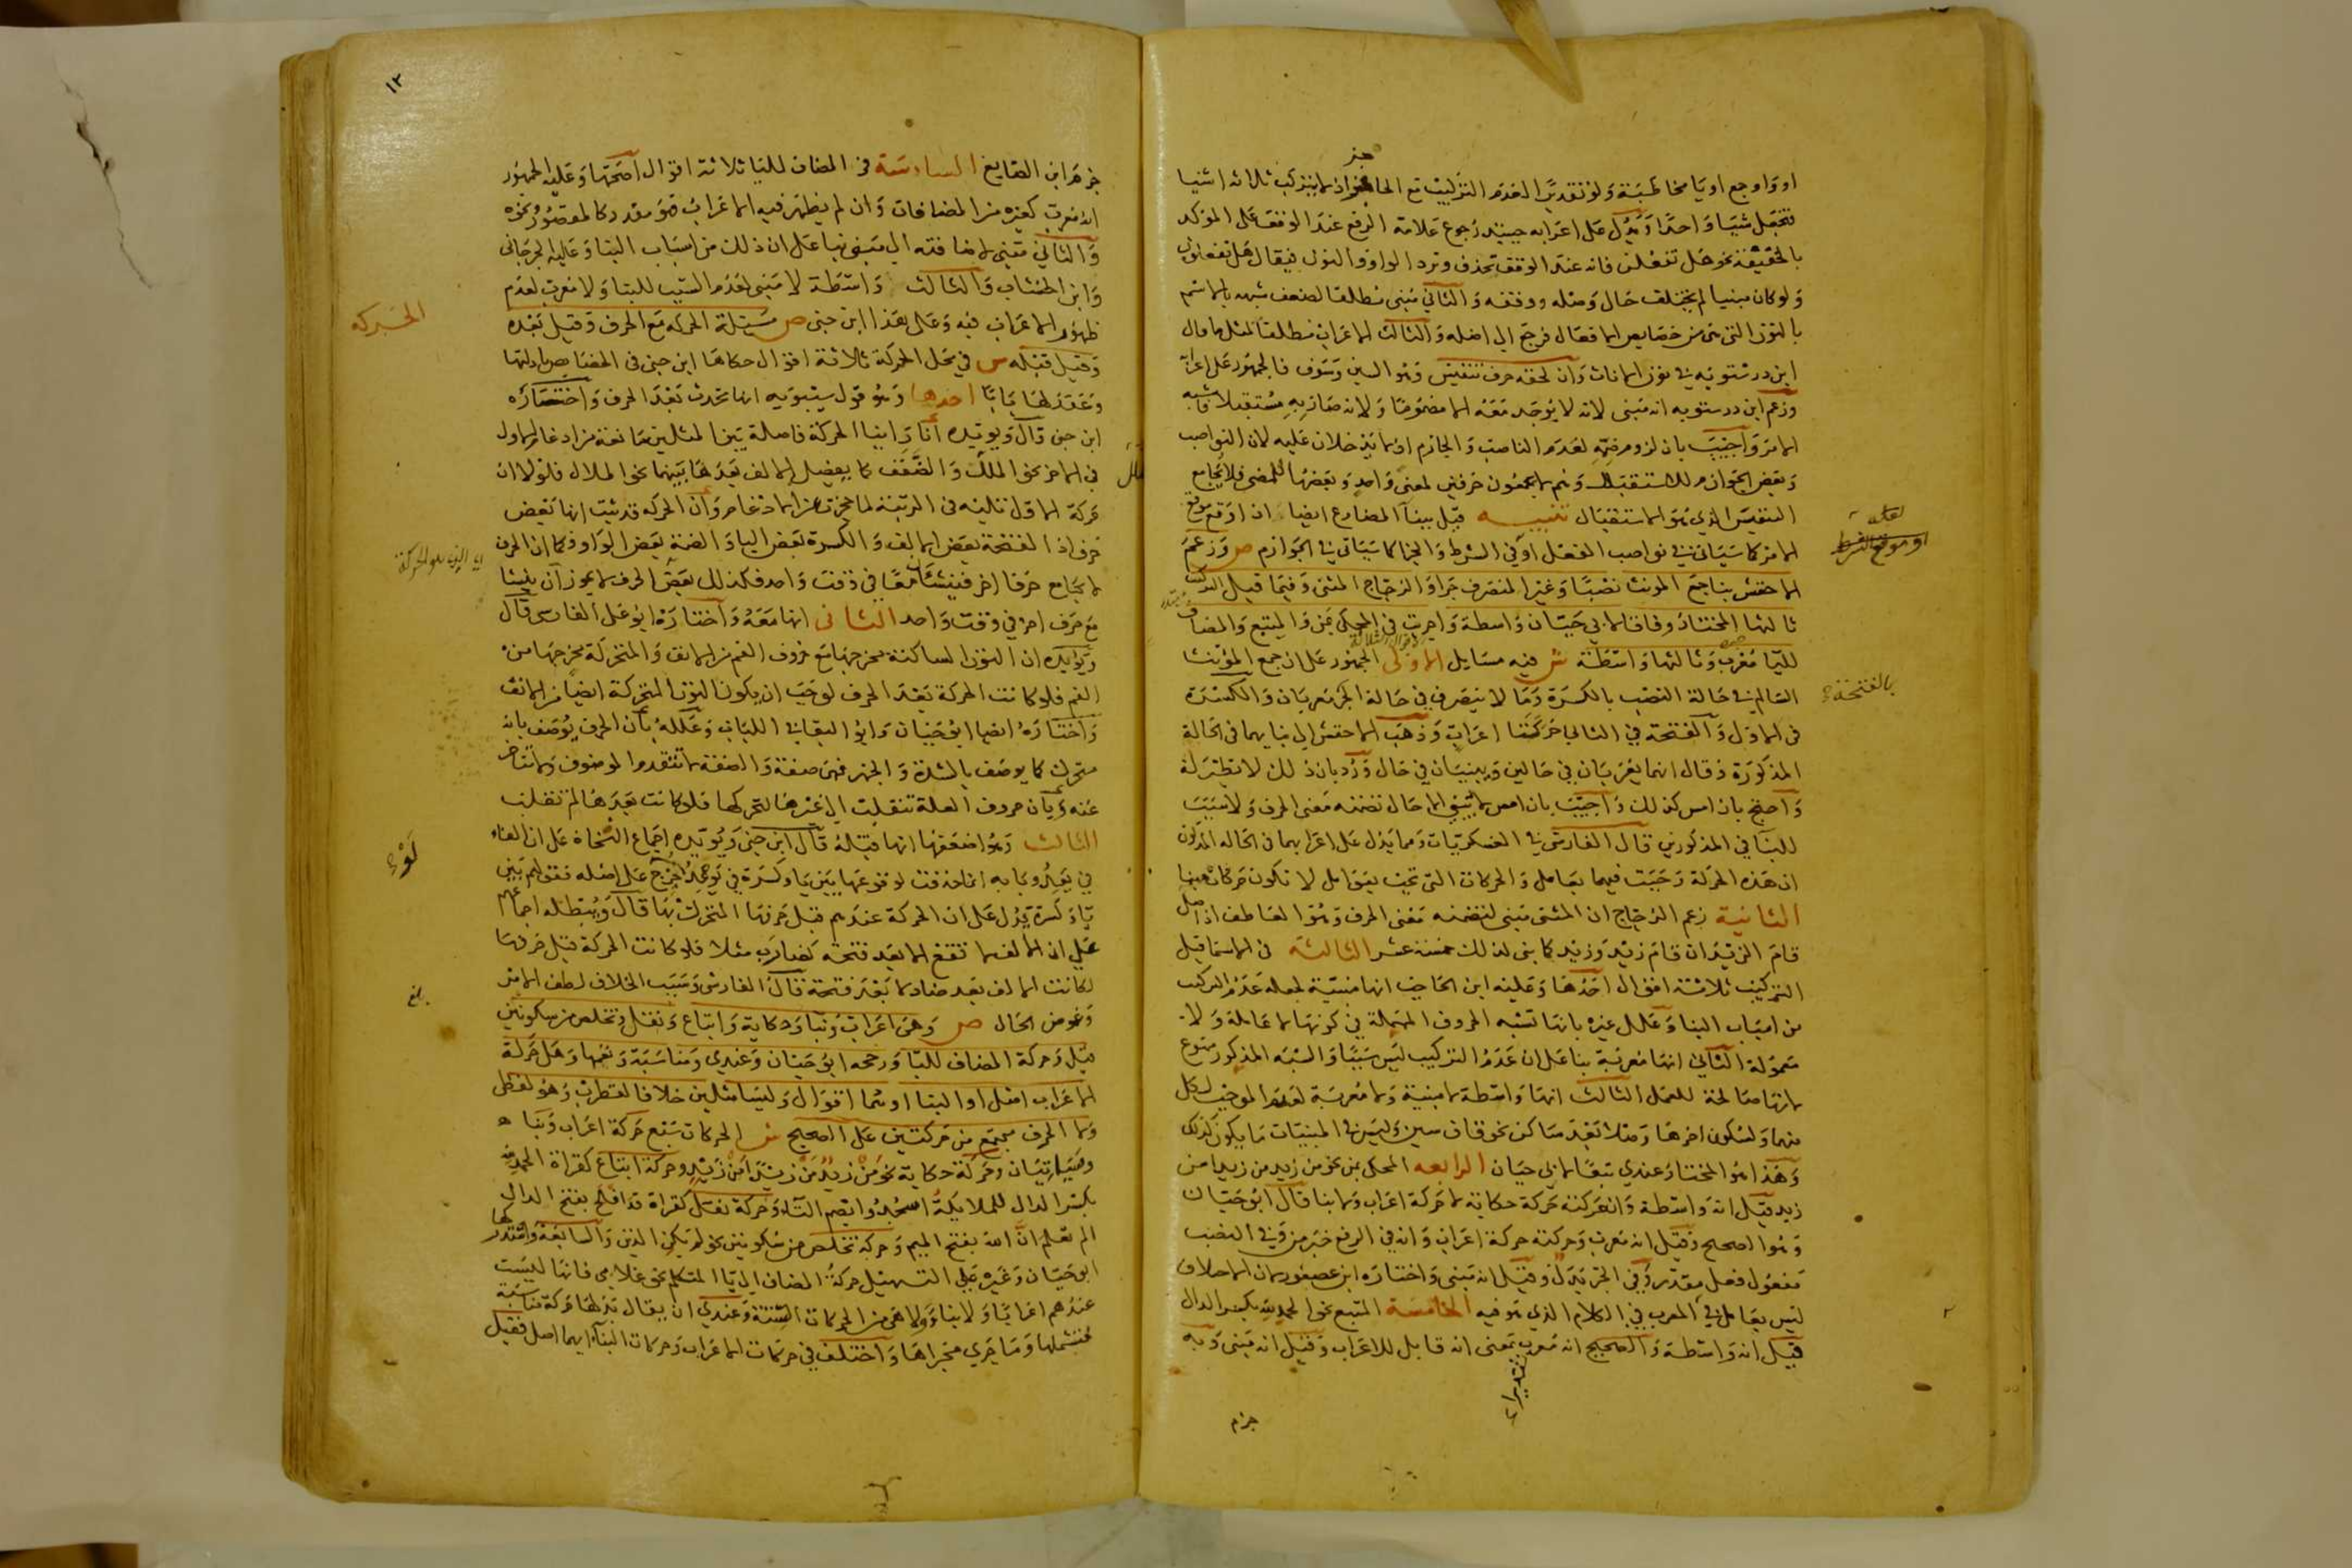 او واو جمع او يا مخاطبة ولو تقديرا لعدم التركيب مع الحاجز اذ لا يتركب ثلاثة اشيا
فتجعل شيا واحدا ويدل على اعرابه حينئذ رجوع علامة الرفع عند الوقف على المؤكد
بالخفيفة نحو هل تفعلن فانه عند الوقف تحذف وترد الواو والنون فيقال هل تفعلون
ولو كان مبنيا لم يختلف حال وصله ووقفه والثاني مبني مطلقا لضعف شبهه بالاسم
بالنون التي هي من خصايص الافعال فرجع الى اصله والثالث الاعراب مطلقا لمثل ما قال
ابن درستويه في نون الاناث وان لحقه حرف تنفيس وهو السين وسوف فالجمهور على اعرابه
وزعم ابن درستويه انه مبني لانه لا يوجد معه الا مضموما ولانه صار به مستقبلا فاشبه
الامر واجيب بان لزوم ضمه لعدم الناصب والجازم اذ لا يدخلان عليه لان النواصب
وبعض الجوازم للاستقبال وهم لا يجمعون حرفين لمعنى واحد وبعضها للمضي فلا يجامع
التنفيس الذي هو الاستقبال تنبيه قيل ببنا المضارع ايضا ان اوقع موقع
الامر كما سياتي في نواصب الفعل او في الشرط والجزا كما سياتي في الجوازم ص وزعم
الاخفش بنا جمع المونث نصبا وغير المنصرف جرا والزجاج المثنى وفيما قبل التركيب
ثالثها المختار وفاقا لابي حيان واسطة واجريت في المحكي بمن والمتبع والمضاف
لليا معرب وثالثها واسطة ش فيه مسايل الاولى الجمهور على ان جمع المؤنث
السالم في حالة النصب بالكسرة وما لا ينصرف في حالة الجر معربان والكسرة
في الاول والفتحة في الثاني حركتا اعراب وذهب الاخفش الى بنايهما في الحالة
المذكورة وقال انهما يعربان في حالين ويبنيان في حال ورد بان ذلك لا نظير له
واحتج بان امس كذلك واجيب بان امس لم تبن الا حال تضمنه معنى الحرف ولا سبب
للبنا في المذكورين قال الفارسي في العسكريات ومما يدل على اعرابهما في الحاله المذكورة
ان هذه الحركة وجبت فيهما بعامل والحركات التي تجب بعوامل لا تكون حركات بنا
الثانية زعم الزجاج ان المثنى مبني لتضمنه معنى الحرف وهو العاطف اذ اصل
قام الزيدان قام زيد وزيد كما بني لذلك خمسة عشر الثالثة في الاسما قبل
التركيب ثلاثة اقوال احدها وعليه ابن الحاجب انها مبنية لجعله عدم التركيب
من اسباب البنا وعلل غيره بانها تشبه الحروف المهملة في كونها لا عاملة ولا
معمولة الثاني انها معربة بنا على ان عدم التركيب ليس سببا والشبه المذكور ممنوع
لانها صالحة للعمل الثالث انها واسطة لا مبنية ولا معربة لعدم الموجب لكل
منهما ولسكون اخرها وصلا بعد ساكن نحو قاف سين وليس في المبنيات ما يكون كذلك
وهذا هو المختار عندي تبعا لابي حيان الرابعه المحكي بمن نحو من زيد من زيدا من
زيد قيل انه واسطة وان حركته حركة حكاية لا حركة اعراب ولا بنا قال ابو حيان
وهو الصحيح وقيل انه معرب وحركته حركة اعراب وانه في الرفع خبر من وفي النصب
مفعول فعل مقدر وفي الجر بدل وقيل انه مبني واختاره ابن عصفور لان الاختلاف
ليس بعامل في المعرب في الكلام الذي هو فيه الخامسة المتبع نحو الحمد لله بكسر الدال
قيل انه واسطة والصحيح انه معرب بمعنى انه قابل للاعراب وقيل انه مبني وبه
جزم
لعله
او موقع الشرط
بالفتحة
تقديرا
١٢
جزم ابن الصايغ السادسة في المضاف لليا ثلاثة اقوال اصحها وعليه الجمهور
انه معرب كغيره من المضافات وان لم يظهر فيه الاعراب فهو مقدر كالمقصور ونحوه
والثاني مبني لاضافته الى مبني بنا على ان ذلك من اسباب البنا وعليه الجرجاني
وابن الخشاب والثالث واسطة لا مبني لعدم السبب للبنا ولا معرب لعدم
ظهور الاعراب فيه وعلى هذا ابن جني ص مسئلة الحركة مع الحرف وقيل بعده
وقيل قبله ش في محل الحركة ثلاثة اقوال حكاها ابن جني في الخصايص بادلتها
وعقد لها بابا احدها وهو قول سيبويه انها تحدث بعد الحرف واختاره
ابن جني قال ويويده انا راينا الحركة فاصلة بين المثلين مانعة من ادغام الاول
في الاخر نحو الملل والضفف كما يفصل الالف بعدها بينهما نحو الملال فلولا ان
حركة الاول تليه في الرتبة لما حجزت عن الادغام وان الحركة قد ثبت انها بعض
حرف اذ الفتحة بعض الالف والكسرة بعض اليا والضمة بعض الواو فكما ان الحرف
لا يجامع حرفا اخر فينشئان معا في وقت واحد فكذلك بعض الحرف لا يجوز ان ينشا
مع حرف اخر في وقت واحد الثاني انها معه واختاره ابو علي الفارسي قال
ويويده ان النون الساكنة مخرجها مع حروف الفم من الانف والمتحركة مخرجها من
الفم فلو كانت الحركة بعد الحرف لوجب ان يكون النون المتحركة ايضا من الانف
واختاره ايضا ابو حيان وابو البقا في اللباب وعلله بان الحرف يوصف بانه
متحرك كما يوصف بالشدة والجهر فهي صفة والصفة لا تتقدم الموصوف ولا تتاخر
عنه وبان حروف العلة تنقلب الى غيرها لتحركها فلو كانت بعدها لم تقلب
الثالث وهو اضعفها انها قبله قال ابن جني ويويده اجماع النحاة على ان الفاء
في يعد وبابه انما حذفت لوقوعها بين يا وكسرة في يوعد لو خرج على اصله فقولهم بين
يا وكسرة يدل على ان الحركة عندهم قبل حرفها المتحرك بها قال ويبطله اجماعهم
على ان الالف لا تقع الا بعد فتحة كضارب مثلا فلو كانت الحركة قبل حرفها
لكانت الالف بعد ضاد لا بعد فتحة قال الفارسي وسبب الخلاف لطف الامر
وغموض الحال ص وهي اعراب وبنا وحكاية واتباع ونقل وتخلص من سكونين
قيل وحركة المضاف لليا ورجحه ابو حيان وعندي ومناسبة وتعمها وهل حركة
الاعراب اصل او البنا او هما اقوال وليسا مثلين خلافا لقطرب وهو لفظي
ولا الحرف مجتمع من حركتين على الصحيح ش الحركات سبع حركة اعراب وبنا
وهما بينان وحركة حكاية نحو من زيد من زيدا من زيد وحركة اتباع كقراة الحمد لله
بكسر الدال للملايكة اسجدوا بضم التاء وحركة نقل كقراة قد افلح بفتح الدال
الم تعلم ان الله بفتح الميم وحركة تخلص من سكونين نحو لم يكن الذين والسابعة واستدركها
ابو حيان وغيره على التسهيل حركة المضاف الى يا المتكلم نحو غلامي فانها ليست
عندهم اعرابا ولا بناء ولا هي من الحركات الستة وعندي ان يقال بدلها حركة مناسبة
فتشملها وما جرى مجراها واختلف في حركات الاعراب وحركات البناء ايهما اصل فقيل
الحركة
لو
بلغ